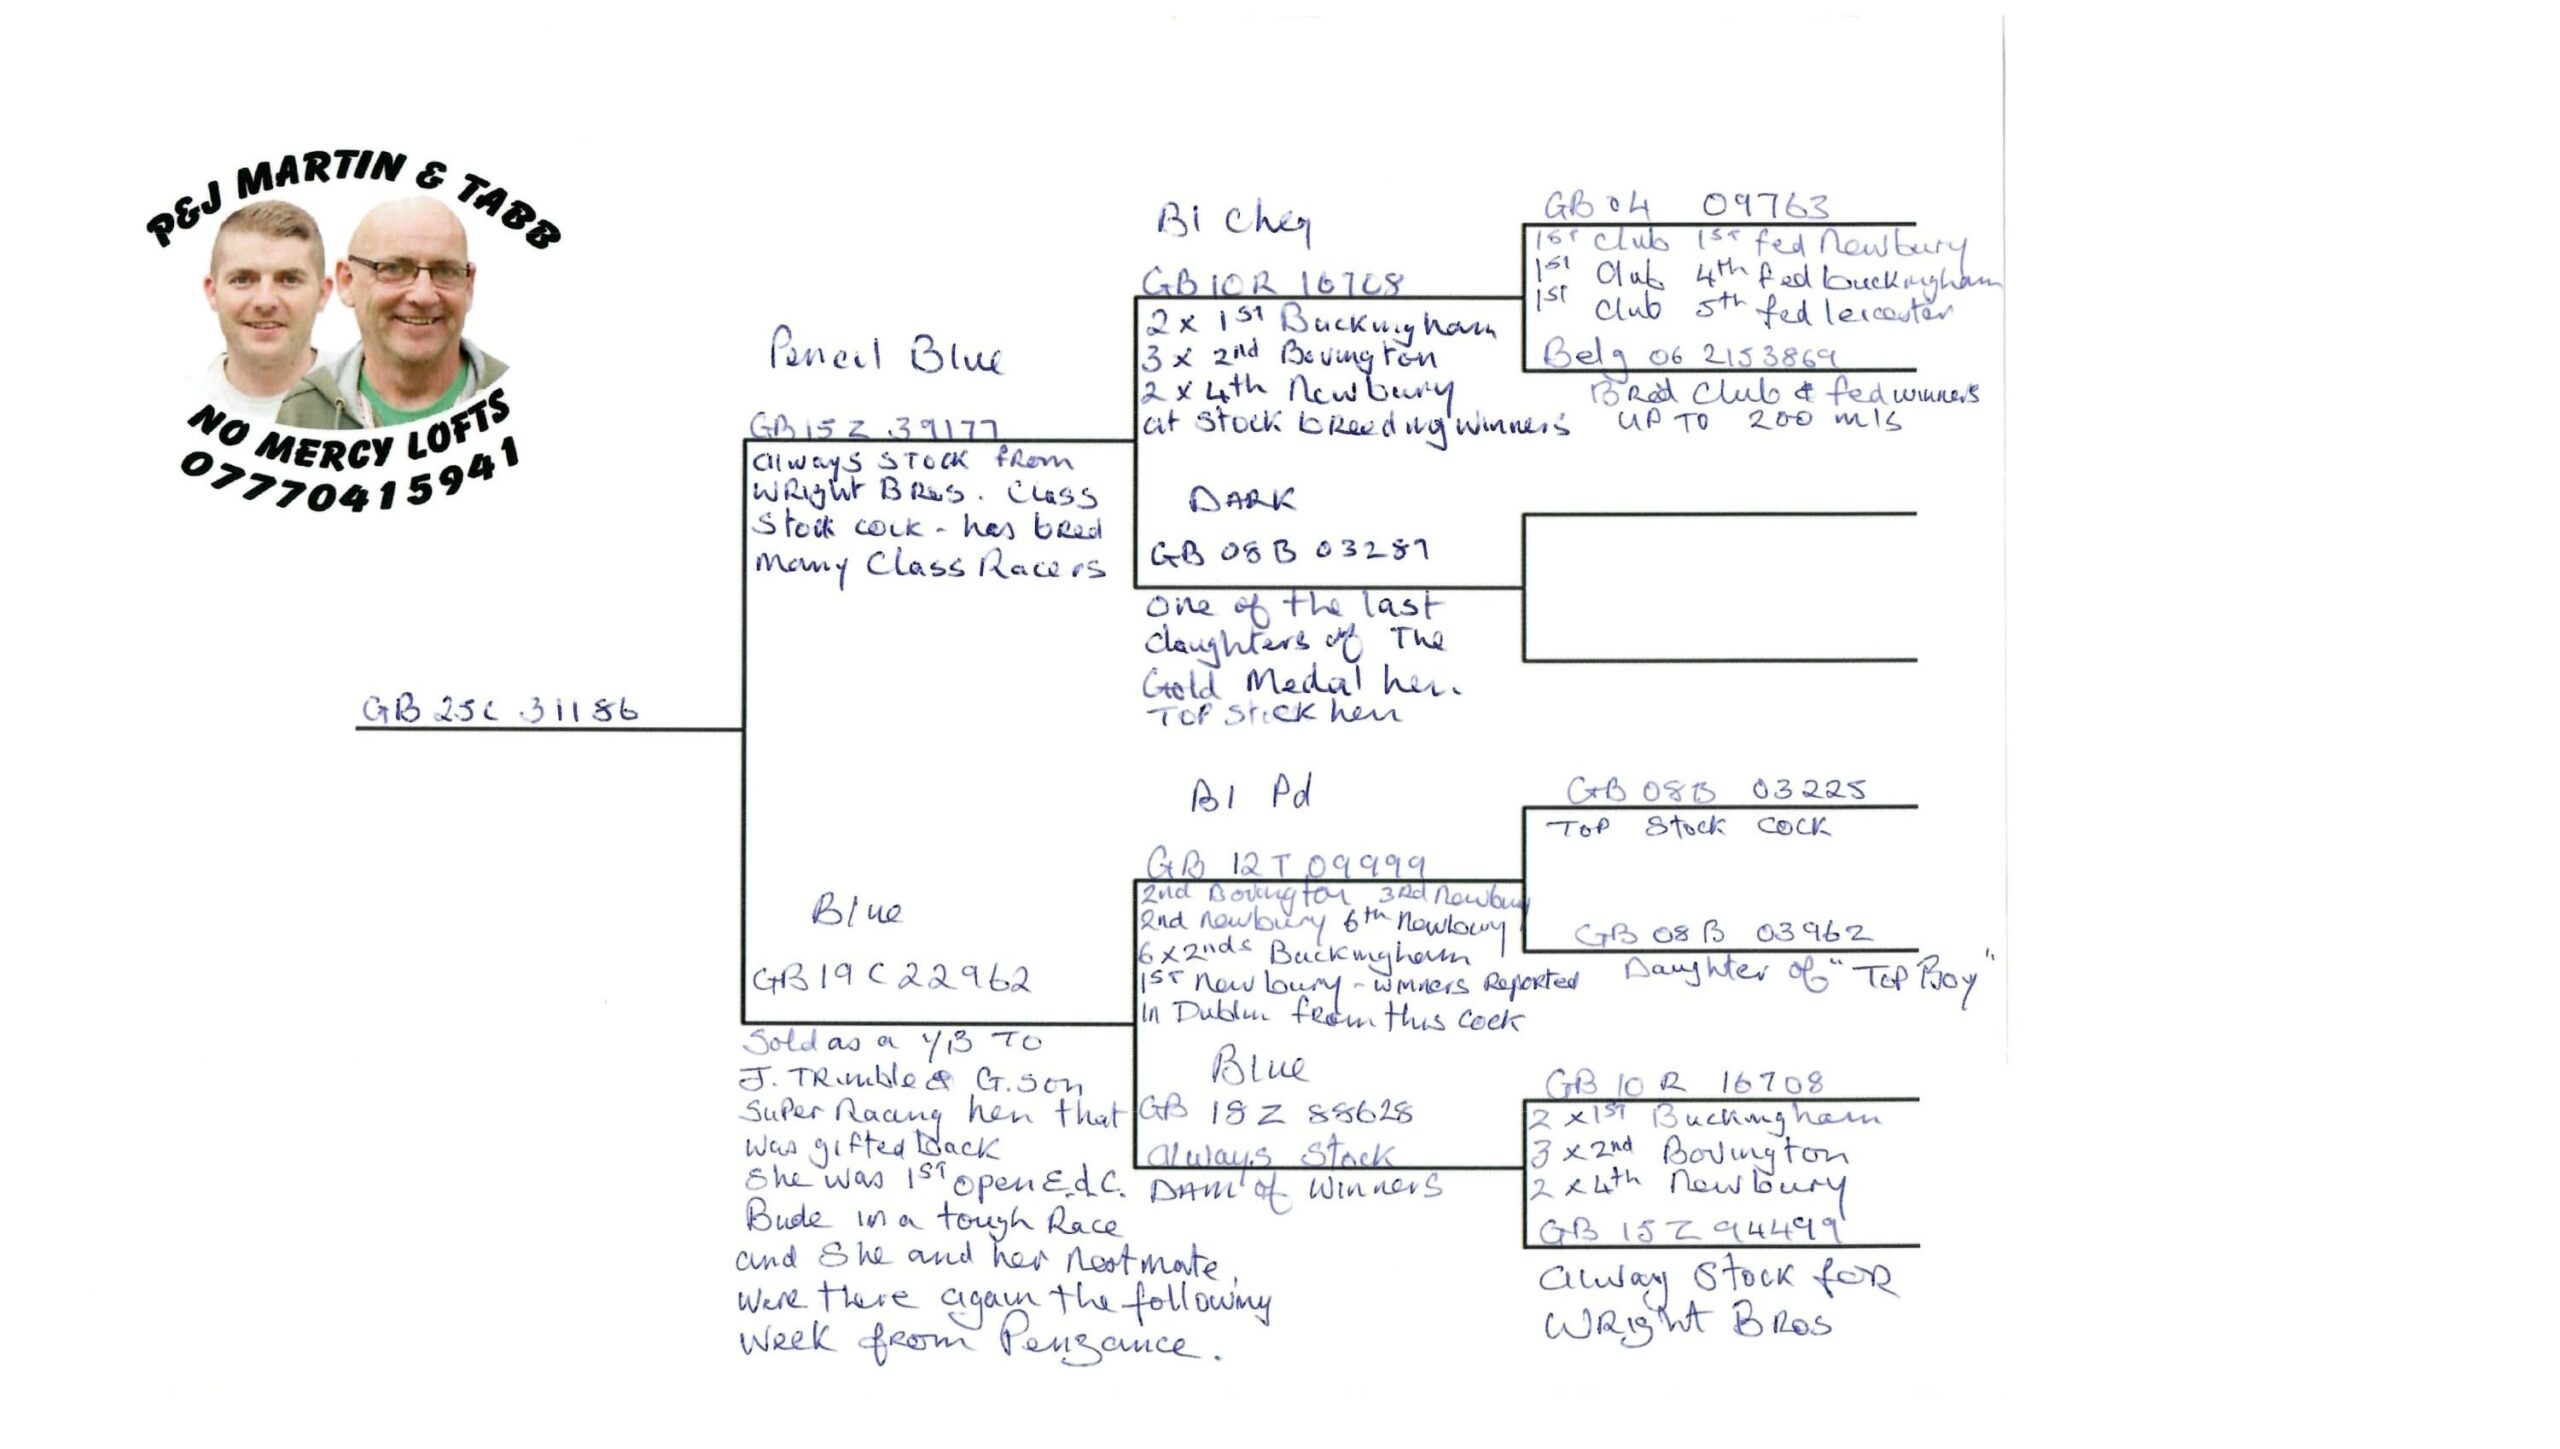 P&J MARTIN & TABB
NO MERCY LOFTS
07770415941
GB 25C 31186
Pencil Blue
GB 15 Z 39177
always STOCK from
WRight BRos. Class
Stock cock - has bred
many Class Racers
Blue
GB 19 C 22962
Sold as a Y/B TO
J. TRimble & G.son
Super Racing hen that
was gifted back
She was 1ST open E.d.C.
Bude in a tough Race
and She and her nestmate
were there again the following
week from Penzance.
Bl Cheq
GB 10 R 16708
2 x 1ST Buckingham
3 x 2nd Bovington
2 x 4th Newbury
at Stock breeding winners
DARK
GB 08 B 03287
One of the last
daughters of The
Gold Medal hen.
TOP Stock hen
Bl Pd
GB 12 T 09999
2nd Bovington 3Rd Newbury
2nd Newbury 6th Newbury
6 x 2nds Buckingham
1ST Newbury - winners Reported
in Dublin from this cock
Blue
GB 18 Z 88628
always Stock
DAM of winners
GB 04 09763
1ST Club 1ST fed Newbury
1ST Club 4th fed buckingham
1ST Club 5th fed leicester
Belg 06 2153869
BRed Club & fed winners
UP TO 200 mls
GB 08B 03225
TOP Stock COCK
GB 08 B 03962
Daughter of "TOP Boy"
GB 10 R 16708
2 x 1ST Buckingham
3 x 2nd Bovington
2 x 4th Newbury
GB 15 Z 94499
alway Stock foR
WRight BRos